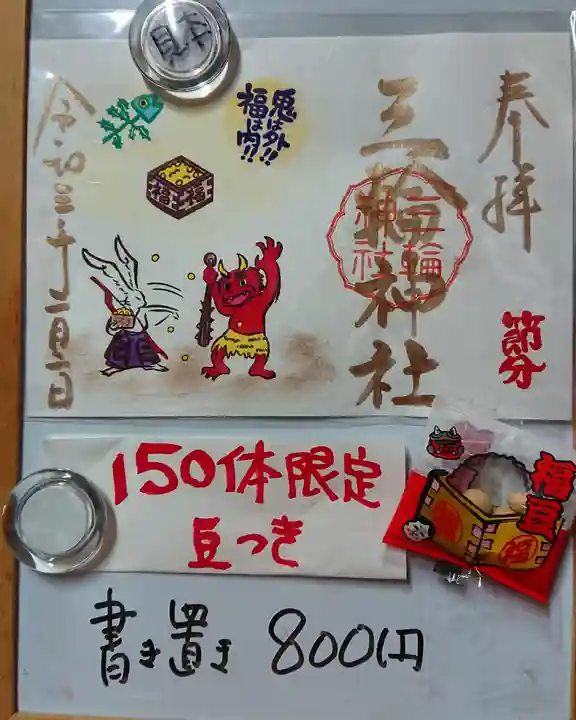 見本
奉拝
三輪神社
三輪神社
節分
鬼は外!!
福は内!!
福 福
令和三年二月二日
150体限定
豆つき
福豆
書き置き 800円